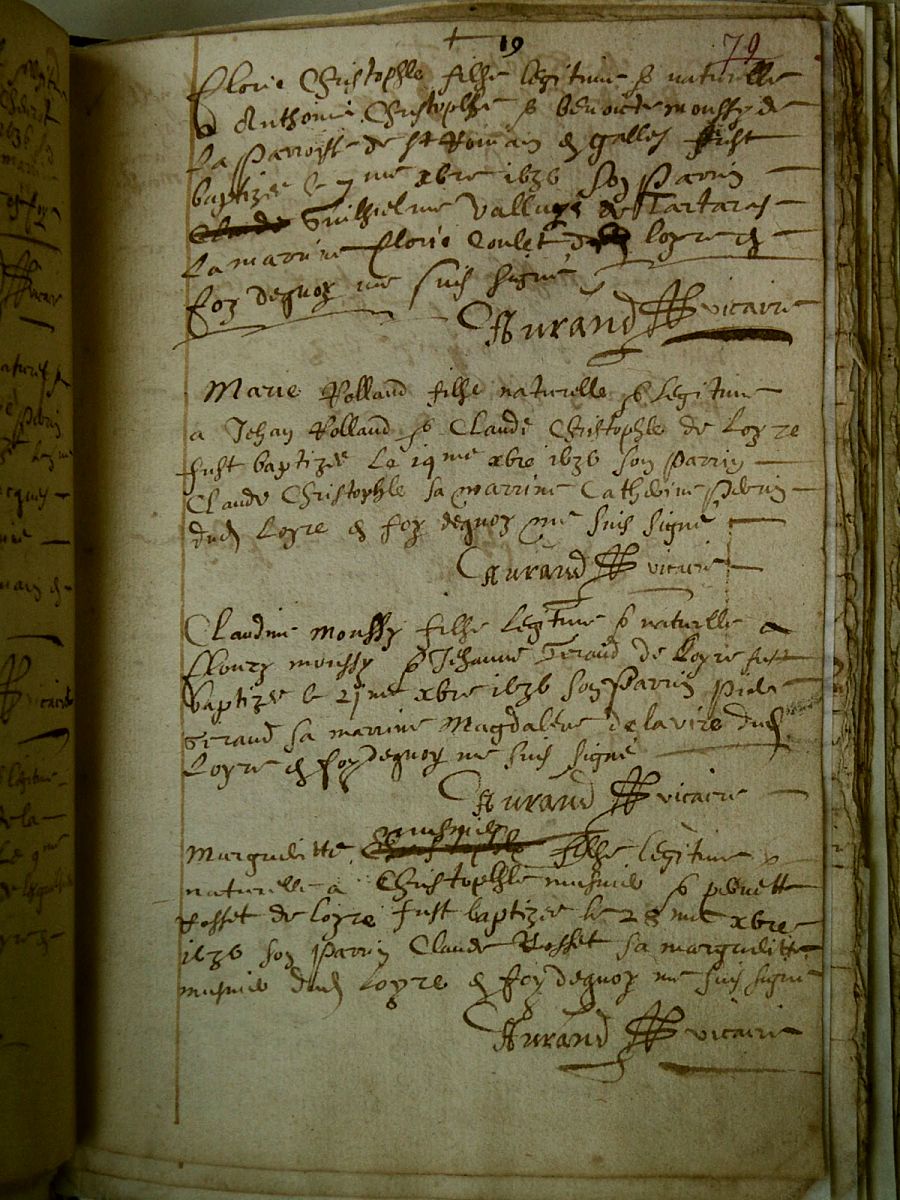 19
79
Florie Christophle filhe legitime & naturelle
a Anthoine Christophle & benoicte moussy de
la parroisse de st Romain en galles fust
baptizée le 7me xbre 1636 son parrin
Claude Guilhielme de Tartaras
la marrine florie Coulet loyre en
foy dequoy me suis signé
Aurand vicaire
Marie Rolland filhe naturelle & legitime
a Jehan Rolland & Claude Christophle de Loyre
fust baptizée le 19me xbre 1636 son parrin
Claude Christophle sa marrine Catherine
dud Loyre en foy dequoy me suis signé
Aurand vicaire
Claudine moussy filhe legitime & naturelle a
floury moussy & Jehanne Geraud de Loyre fust
baptizée le 21me xbre 1636 son parrin
Geraud sa marrine Magdalene delavire dud
Loyre en foy dequoy me suis signé
Aurand vicaire
musnier
Marguelitte Christophle filhe legitime &
naturelle a Christophle musnier & pernette
Rosset de loyre fust baptizée le 28me xbre
1636 son parrin Claude Rosset sa marguelitte
musnier dud Loyre en foy dequoy me suis signé
Aurand vicaire